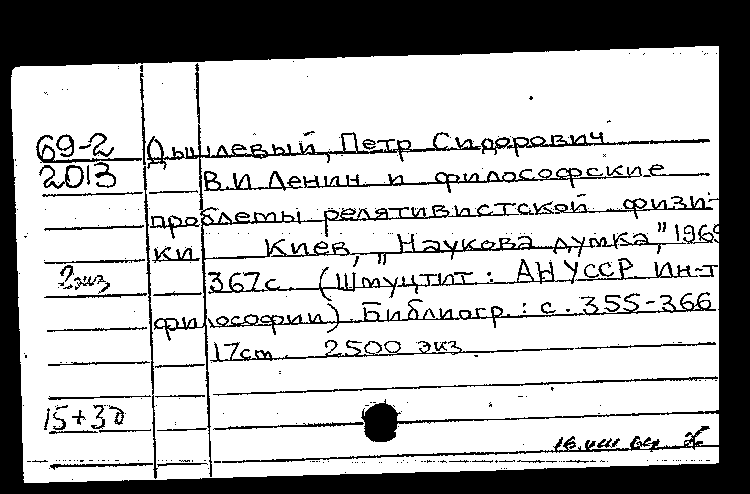 69-2 Дышлевый, Петр Сидорович
2013 В.И Ленин и философские
проблемы релятивистской физи-
ки Киев, „Наукова думка", 1969
2 экз 367 с. (Шмуцтит: АН УССР Ин-т
философии) Библиогр.: с. 355-366
17 см 2500 экз
15+30